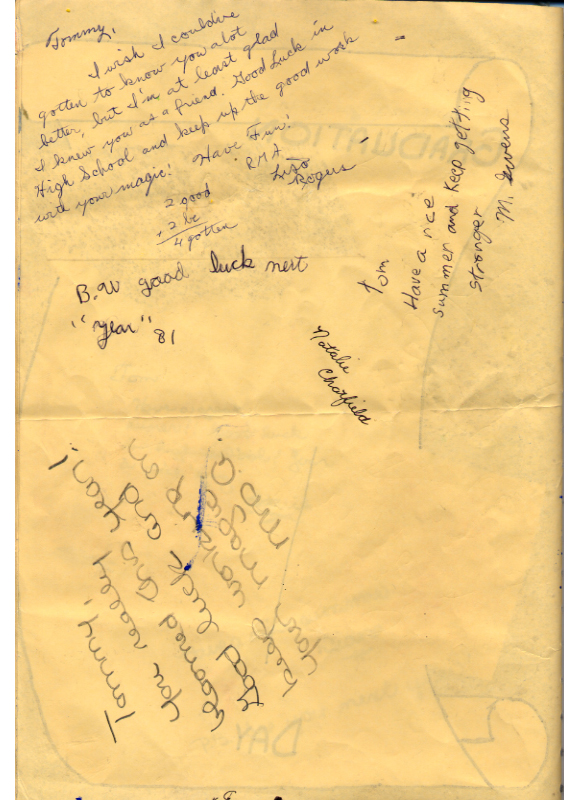 Tommy,
I wish I could've
gotten to know you alot
better, but I'm at least glad
I knew you as a friend. Good Luck in
High School and keep up the good work
with your magic! Have Fun!
RMA
Lisa
Rogus
2 good
+ 2 be
4 gotten
B.W good luck next
"year" 81
Tom
Have a nice
summer and keep getting
stronger
M. Owens
Natalie
Chatfield
Tommy,
You really
bloomed this year!
Good luck and
keep working on
your magic.
Mrs. O.
GRADUATION
DAY